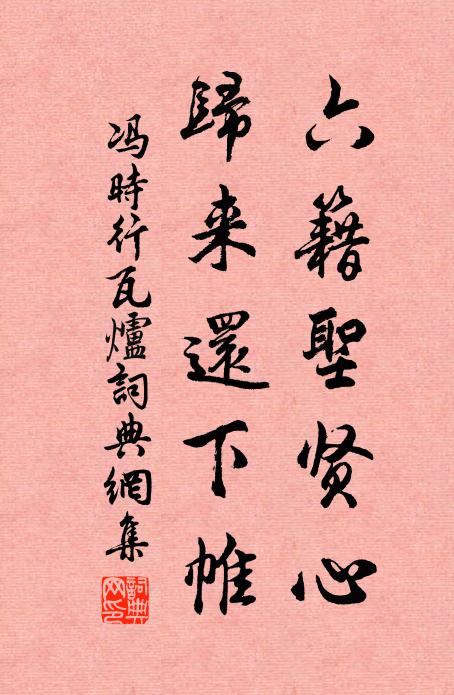 六籍聖贤心
歸来還下帷
冯時行瓦爐詞典網集
詞典網印